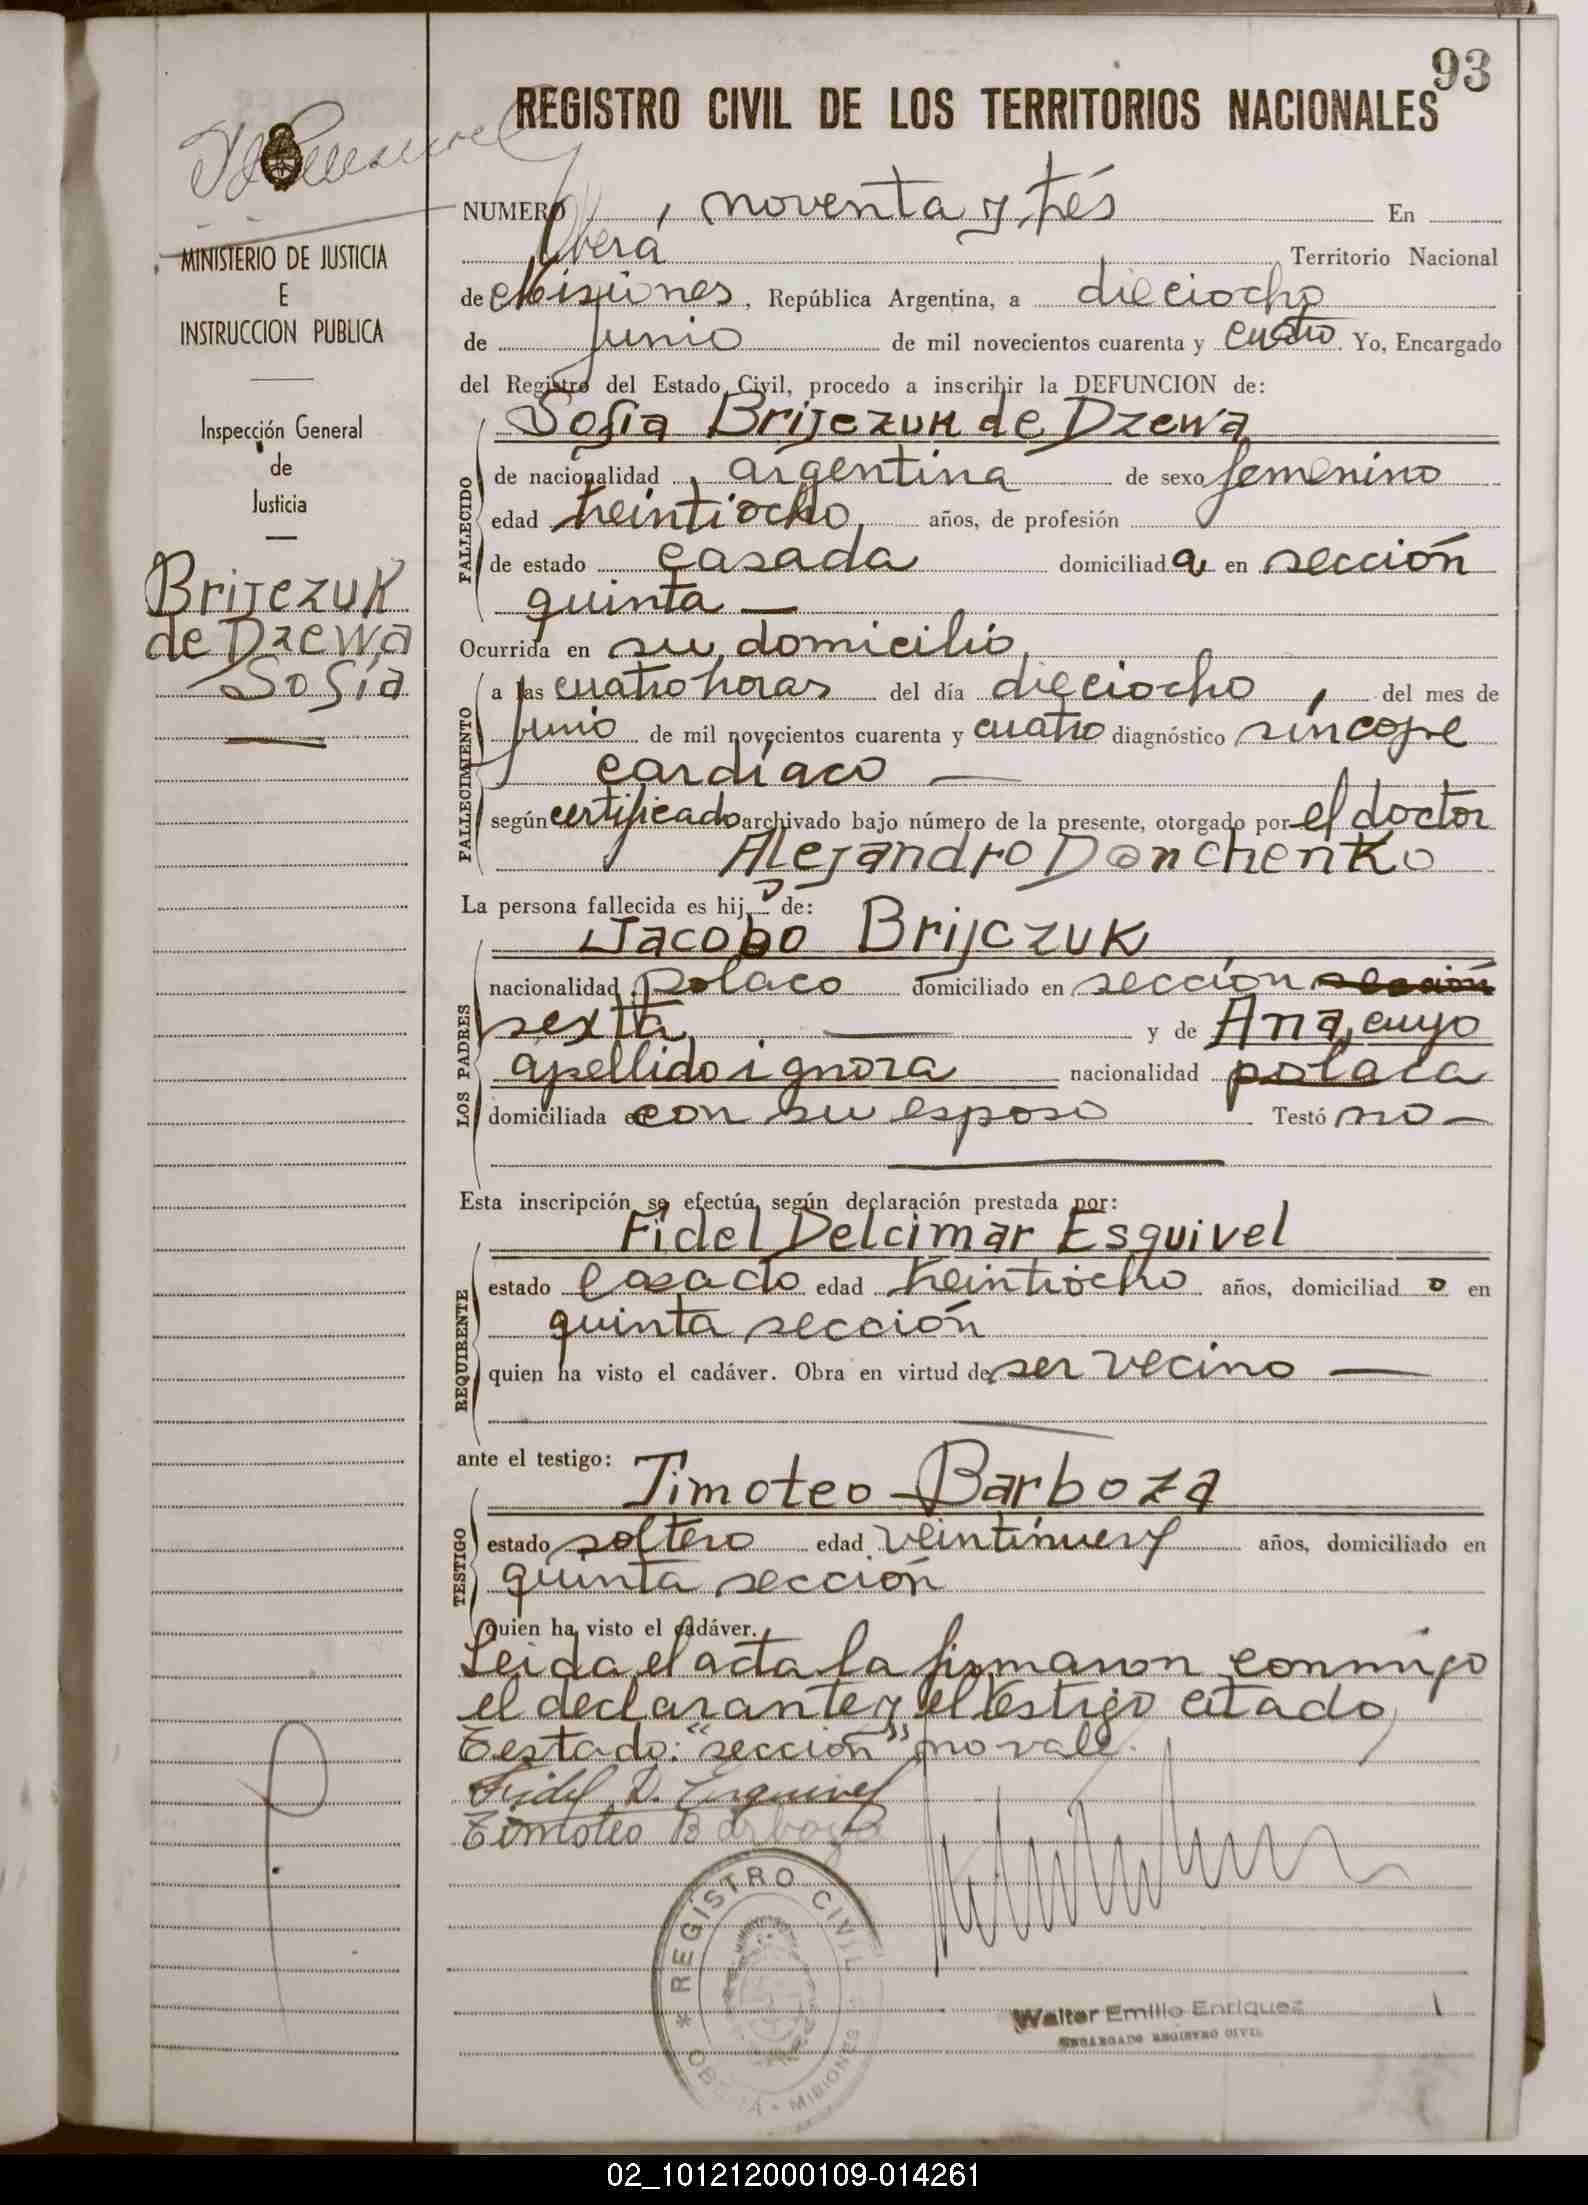 93
REGISTRO CIVIL DE LOS TERRITORIOS NACIONALES
MINISTERIO DE JUSTICIA
E
INSTRUCCION PUBLICA
Inspección General
de
Justicia
Brijezuk
de Dzewa
Sofía
NUMERO noventa y trés En
Oberá Territorio Nacional
de Misiones, República Argentina, a dieciocho
de junio de mil novecientos cuarenta y cuatro. Yo, Encargado
del Registro del Estado Civil, procedo a inscribir la DEFUNCION de:
Sofia Brijezuk de Dzewa
FALLECIDO
de nacionalidad argentina de sexo femenino
edad treintiocho años, de profesión
de estado casada domiciliada en sección
quinta —
Ocurrida en su domicilio
FALLECIMIENTO
a las cuatro horas del día dieciocho, del mes de
junio de mil novecientos cuarenta y cuatro diagnóstico síncope
cardíaco —
según certificado archivado bajo número de la presente, otorgado por el doctor
Alejandro Danchenko
La persona fallecida es hij de:
Jacobo Brijczuk
LOS PADRES
nacionalidad polaco domiciliado en sección sección
sexta — y de Ana, cuyo
apellido ignora nacionalidad polaca
domiciliada en con su esposo Testó no —
Esta inscripción se efectúa según declaración prestada por:
Fidel Delcimar Esquivel
REQUIRENTE
estado casado edad treintiocho años, domiciliado en
quinta sección
quien ha visto el cadáver. Obra en virtud de ser vecino —
ante el testigo:
Timoteo Barboza
TESTIGO
estado soltero edad veintinueve años, domiciliado en
quinta sección
quien ha visto el cadáver.
Leida el acta la firmaron conmigo
el declarante y el testigo citado
Testado: "sección" no vale.
Fidel D. Esquivel
Timoteo Barboza
* REGISTRO CIVIL *
OBERÁ - MISIONES
Walter Emilio Enriquez
ENCARGADO REGISTRO CIVIL
02_101212000109-014261